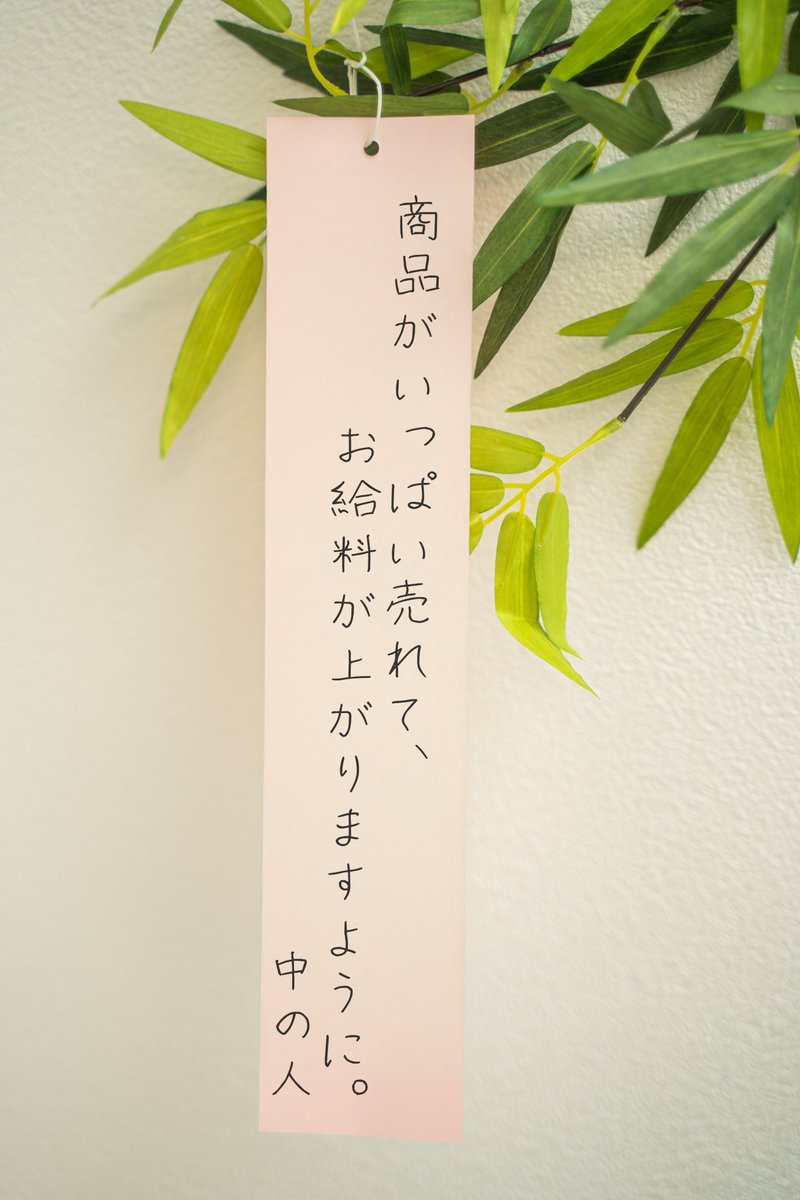 商品がいっぱい売れて、
お給料が上がりますように。
中の人